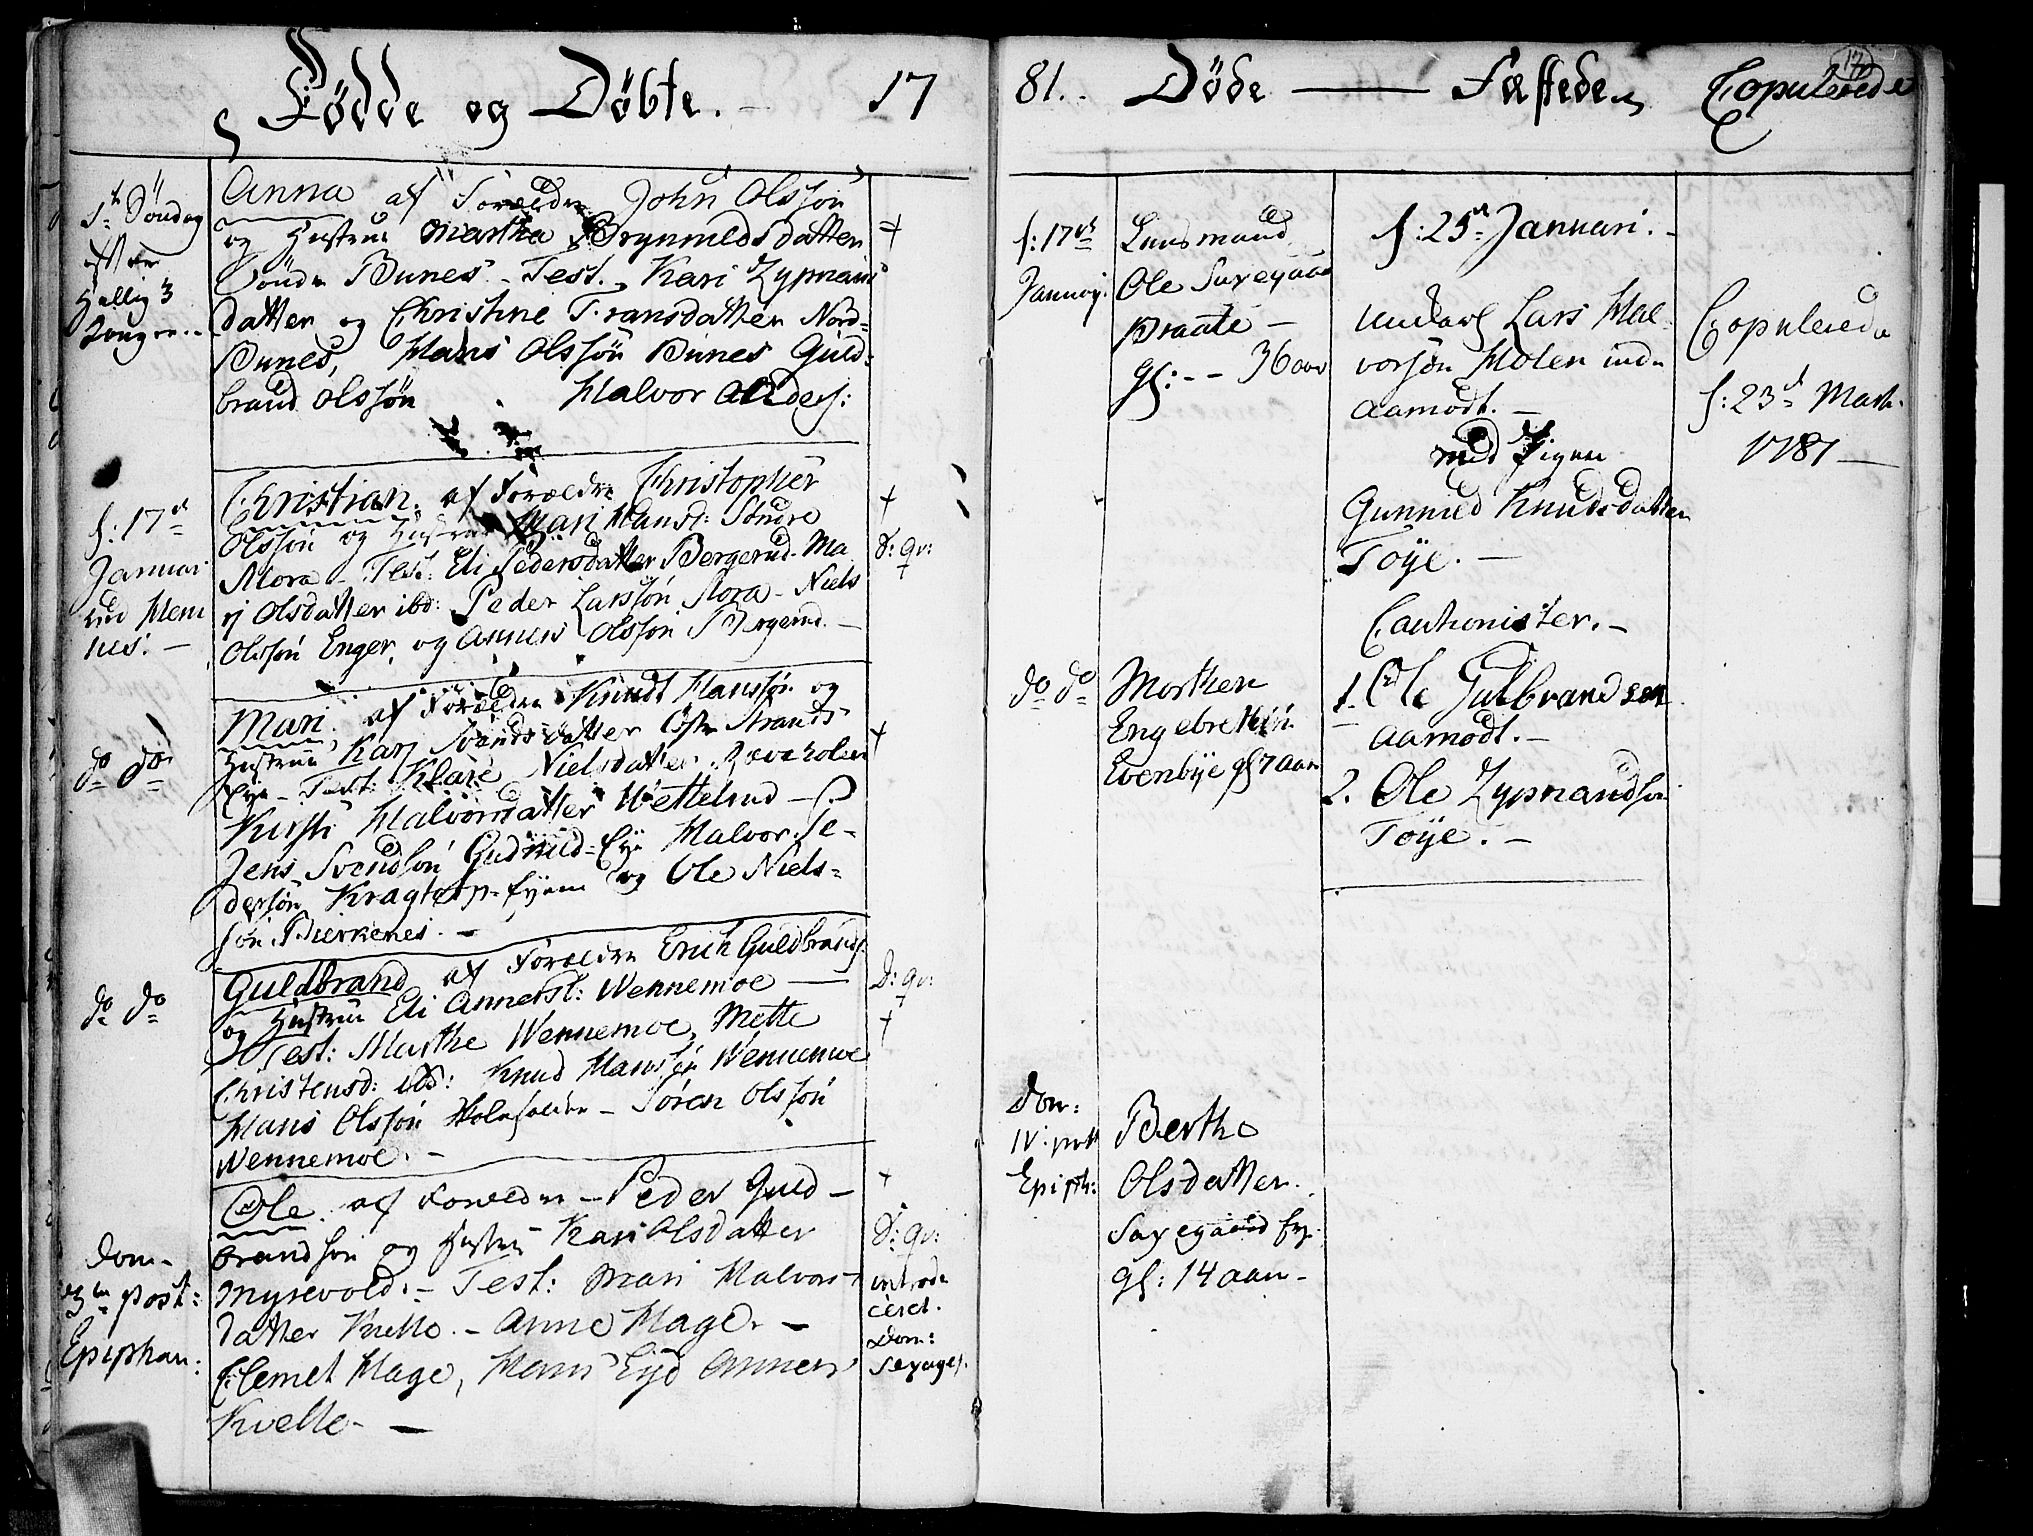 Födde og Döbte. - 17
1t Söndag
efter
Hellig 3
Konger.-
Anna af Forældre John Olssön
og Hustrue Marthe Brynnilds datter
Söndr Bunes - Test. Kari Zypriani
datter og Christine Fransdatter Nord-
Bunes, Hans Olssön Bunes Guld-
brand Olssön Halvor Anders:
+
f: 17d
Januari
ved Hem
nes. -
Christian, af Forældre Christopher
Olssön og Hustrue Mari Hansd: Söndre
Mora - Test: Eli Pedersdatter Bergerud - Ma
ri Olsdatter ibd: Peder Larssön Mora - Niels
Olssön Enger, og Anners Olssön Bergerud. -
+
d: qv:
+
do do
Mari, af Forældre Knudt Hanssön og
Hustrue Kari Svends datter Östr Strands
Eye - Test: Klare Nielsdatter
Kirsti Halvorsdatter Wettelrud -
Jens Svendsön Gudmud-Eye Halvor Pe-
dersön Kragtorp-Eyern og Ole Niels-
sön Bierkenes. -
+
do do
Guldbrand af Forældre Erich Guldbrands:
og Hustrue Eli Annersd: Wennemoe -
Test: Marthe Wennemoe, Mette
Christensd: ibd: Knud Hanssön Wennemoe
Hans Olssön - Sören Olssön
Wennemoe. -
D: qv:
+
+
Dom-
3tia post:
Epiphan:
Ole. af Forældre - Peder Guld-
brandsön og Hustrue Kari Olsdatter
Mysevold. - Test: Mari Halvors-
datter Kvelle. - Anne Hage. -
Clemet Hage, Hans Eyd Anners
Kvelle -
+
D: qv:
introdu
ceret.
Dom:
Sexages.
81. - Döde - Fæstede Copulerede
17
f: 17de
Januarj.
Landsmand
Ole Saxegaard
Braate -
gl: - - 36 aar
do do
Morthen
Engebretsön
Evenbye gl 7 aar
Dom:
IV: post
Epiph:
Berthe
Olsdatter.
Saxegaard Ey-
gl: 14 aar -
f: 25de Januari. -
Lars Hal-
vorsön Holen
Aamodt. -
med Pigen
Gunnild Knudsdatter
Toye. -
Cautionister. -
1. Ole Gulbrandsen
Aamodt. -
2. Ole Zypriandsön
Toye. -
Copulerede
f: 23d Marti.
1781 -